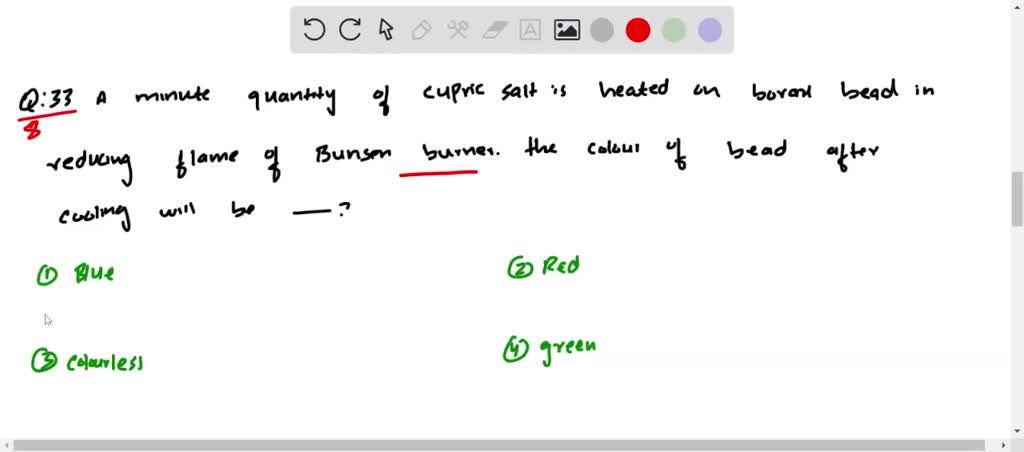 Q:33 A minute quantity of cupric salt is heated on borax bead in
8
reducing flame of Bunsen burner. the colour of bead after
cooling will be __?
① Blue
② Red
③ colourless
④ green